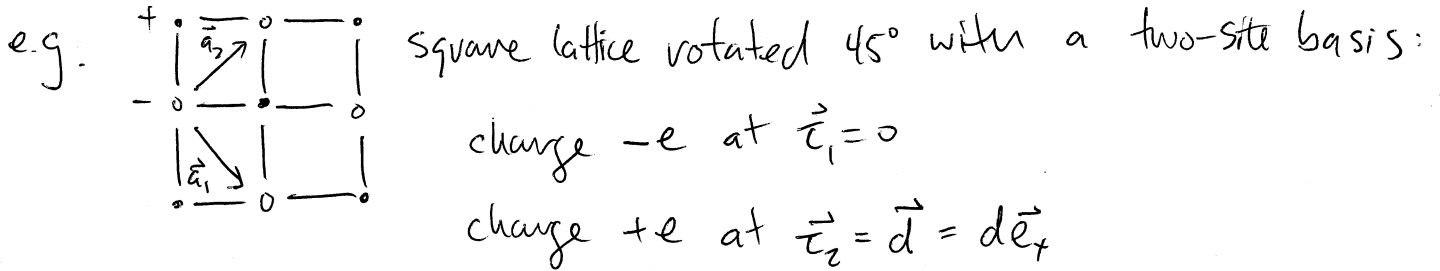 e.g. + a⃗₂ square lattice rotated 45° with a two-site basis:
- a⃗₁ charge -e at τ⃗₁ = 0
charge +e at τ⃗₂ = d⃗ = d e⃗ₓ